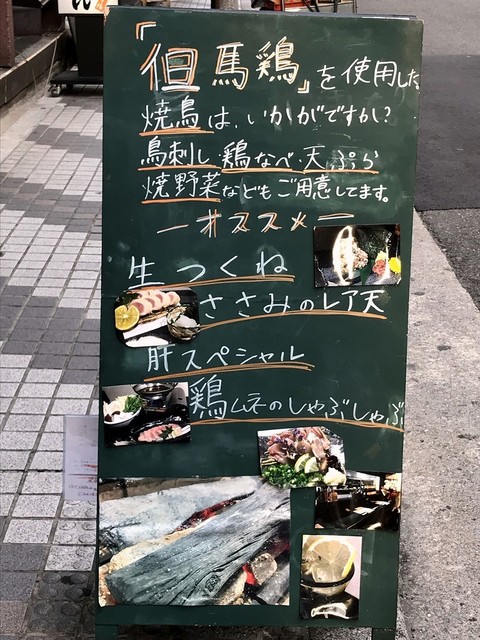 「但馬鶏」を使用した
焼鳥は、いかがですか?
鳥刺し、鶏なべ・天ぷら
焼野菜などもご用意してます。
ーオススメー
生つくね
ささみのレア天
肝スペシャル
鶏ムネのしゃぶしゃぶ